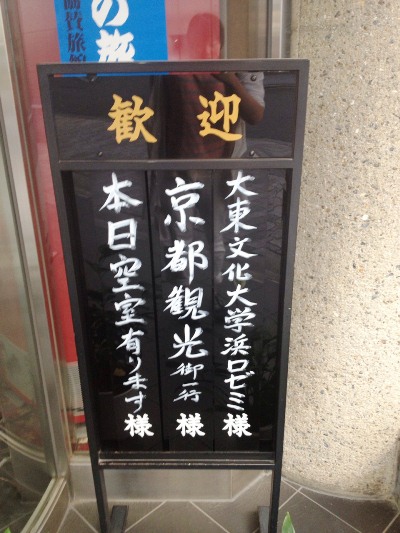 の旅
協賛旅館
歓迎
大東文化大学浜口ゼミ様
京都観光御一行様
本日空室有ります様